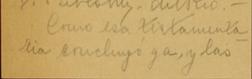 Como esa testamenta
ria concluyo ya, y las